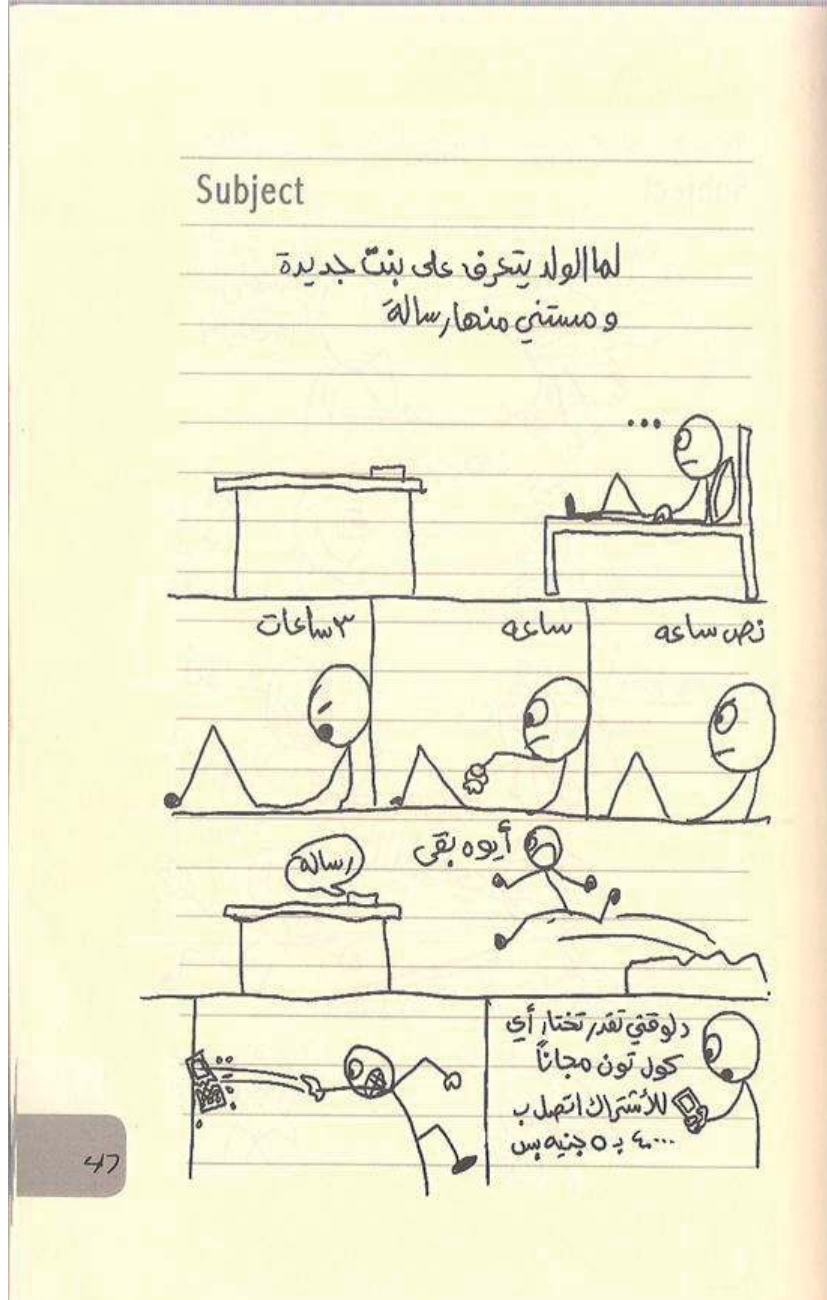 Subject
لما الولد يتعرف على بنت جديدة
و مستني منها رسالة
...
نص ساعه
ساعه
٣ ساعات
أيوه بقى
رسالة
دلوقتي تقدر تختار أي
كول تون مجاناً
للأشتراك اتصل ب
٤٠٠٠ بـ ٥ جنيه بس
47